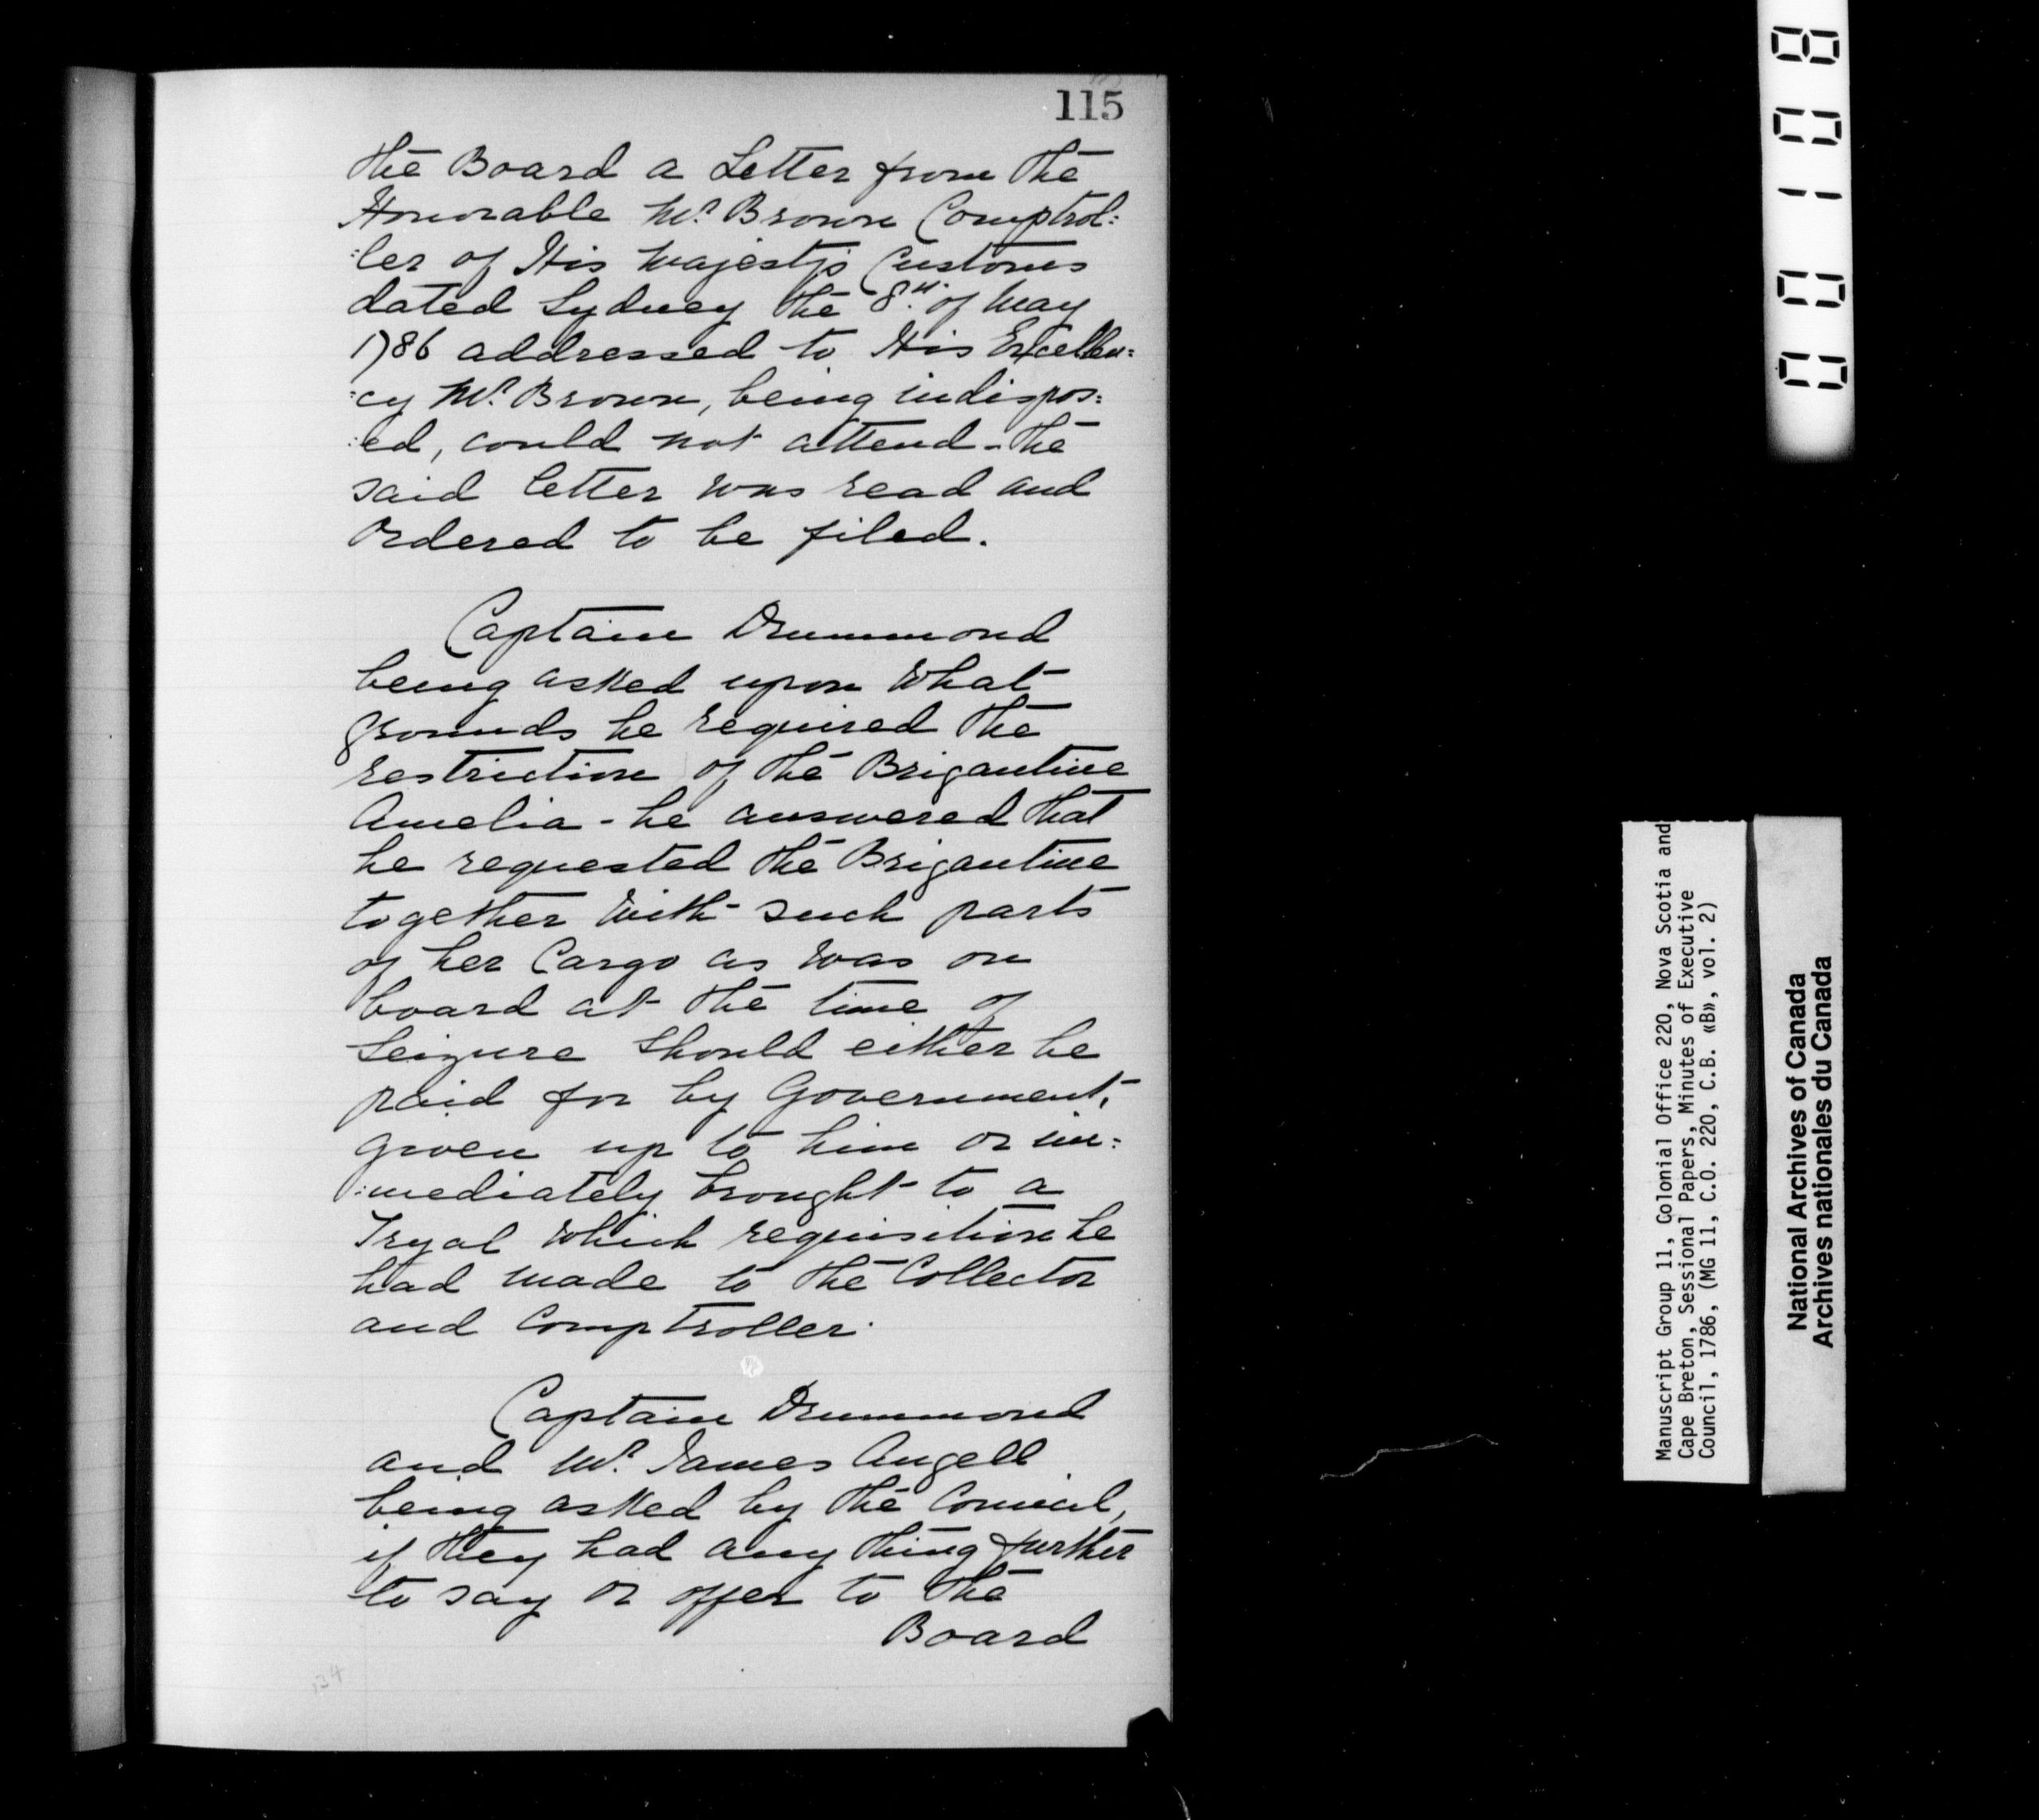 115
the Board a Letter from the
Honorable Mr. Brown Comptrol:
:ler of His Majesty's Customs
dated Sydney the 8th. of May
1786 addressed to His Excellen:
:cy Mr. Brown, being indispos:
:ed, could not attend - the
said letter was read and
Ordered to be filed.
Captain Drummond
being asked upon what
grounds he required the
restriction of the Brigantine
Amelia - he answered that
he requested the Brigantine
together with such parts
of her Cargo as was on
board at the time of
Seizure should either be
paid for by Government,
given up to him or im:
:mediately brought to a
Tryal which requisition he
had made to the Collector
and Comptroller.
Captain Drummond
and Mr. James Angell
being asked by the Council,
if they had any thing further
to say or offer to the
Board
134
001108
Manuscript Group 11, Colonial Office 220, Nova Scotia and
Cape Breton, Sessional Papers, Minutes of Executive
Council, 1786, (MG 11, C.O. 220, C.B. «B», vol. 2)
National Archives of Canada
Archives nationales du Canada